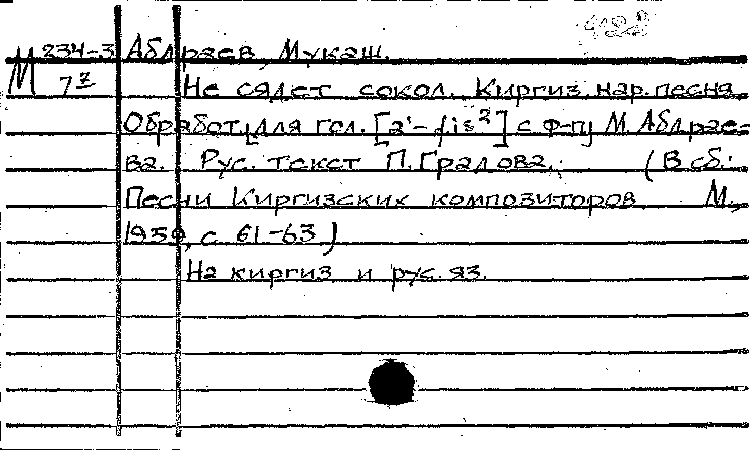 М 234-3 Абдраев, Мукаш.
7 z Не сядет сокол. Киргиз. нар. песня.
Обработ. для гол. [a¹-fis²] с ф-п М. Абдрае-
ва. Рус. текст П. Градова. (В сб.:
Песни Киргизских композиторов. М.,
1959, с. 61-63)
На киргиз. и рус. яз.